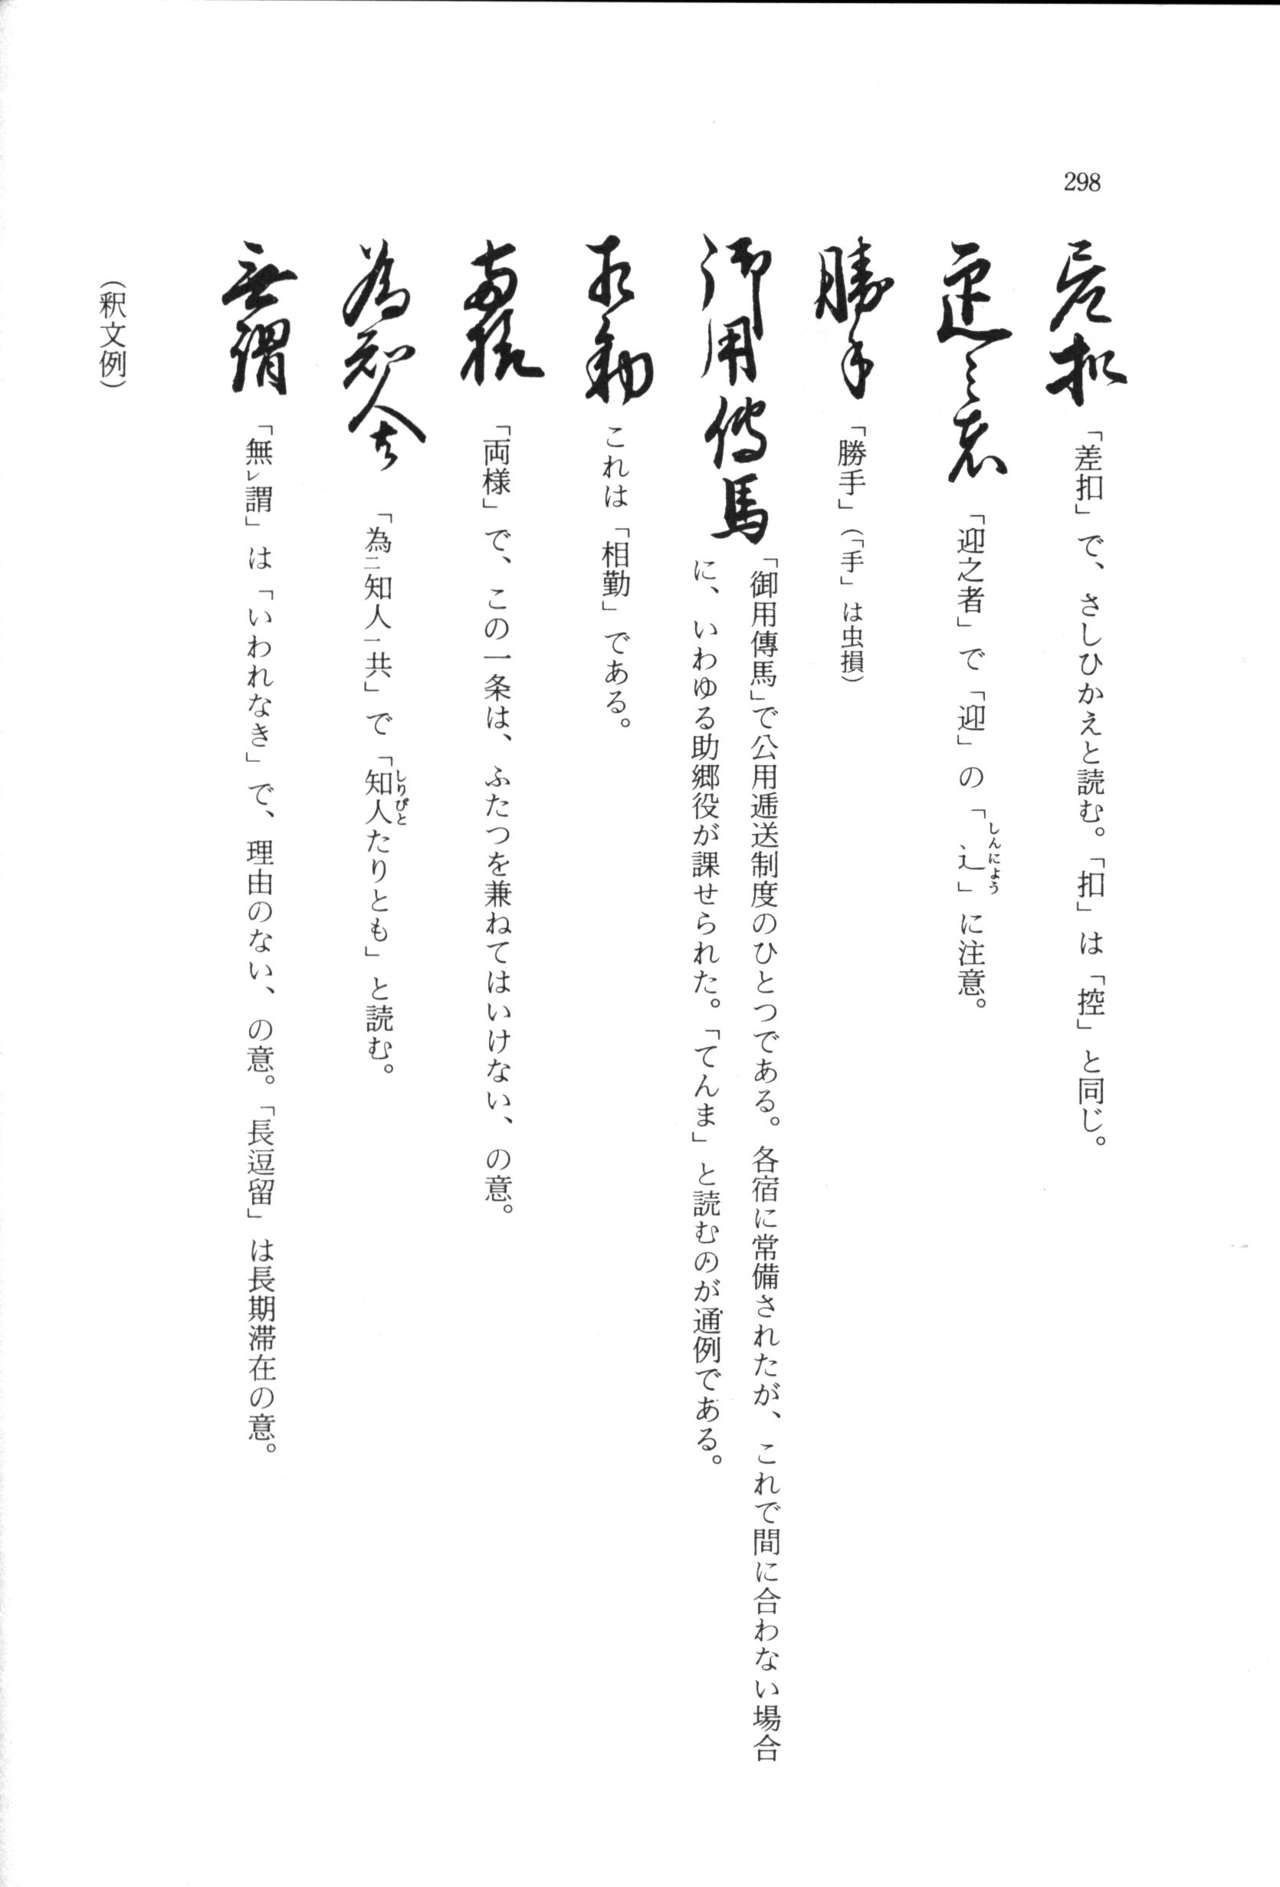 298
差扣 「差扣」で、さしひかえと読む。「扣」は「控」と同じ。
迎之者 「迎之者」で「迎」の「辶」に注意。
しんにょう
勝手 「勝手」(「手」は虫損)
御用傳馬 「御用傳馬」で公用逓送制度のひとつである。各宿に常備されたが、これで間に合わない場合
に、いわゆる助郷役が課せられた。「てんま」と読むのが通例である。
相勤 これは「相勤」である。
両様 「両様」で、この一条は、ふたつを兼ねてはいけない、の意。
為知人共 「為㆓知人㆒共」で「知人たりとも」と読む。
しりびと
無謂 「無㆑謂」は「いわれなき」で、理由のない、の意。「長逗留」は長期滞在の意。
(釈文例)